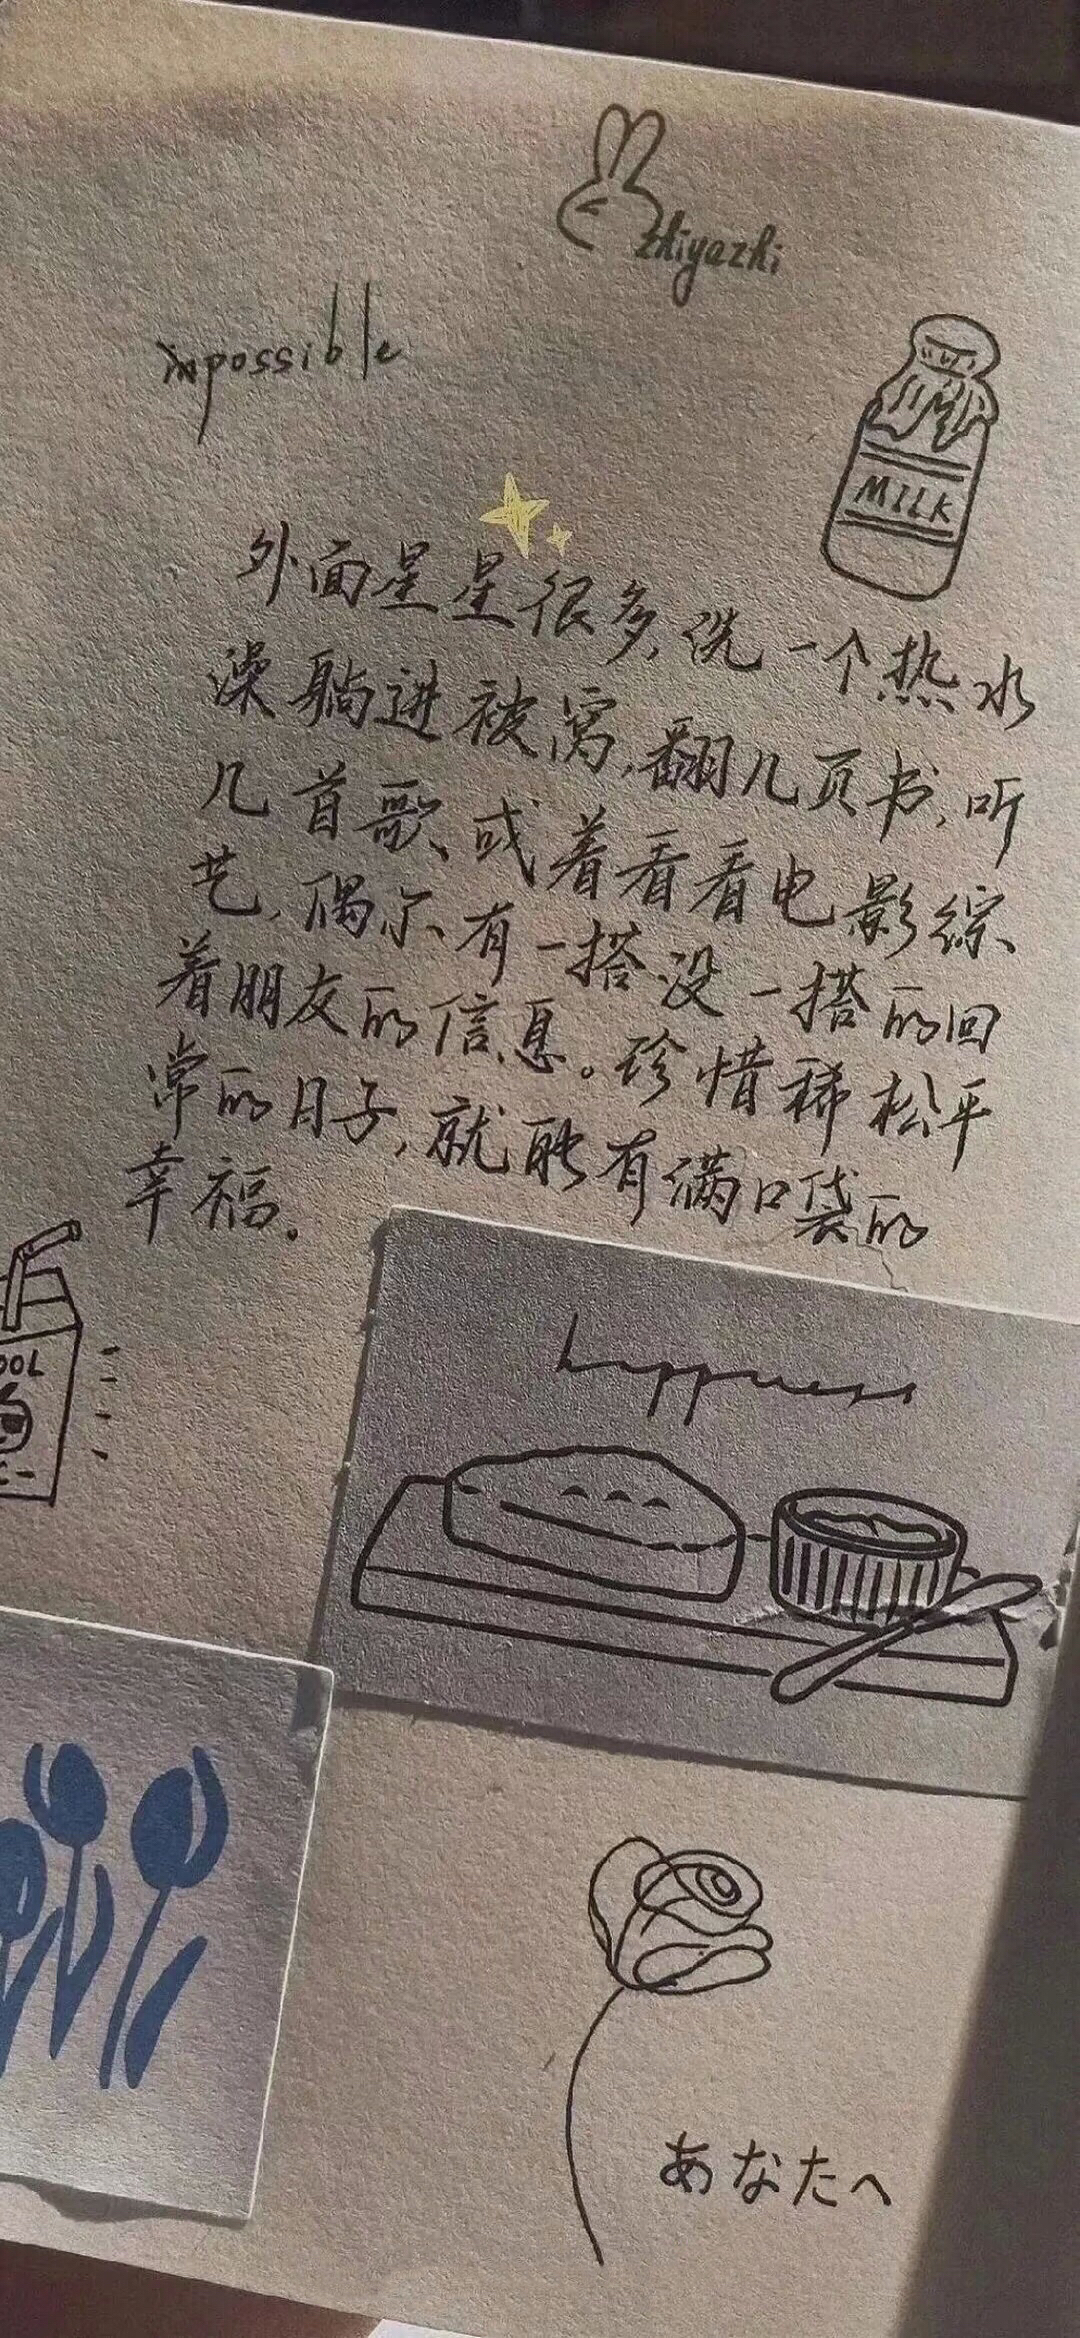 zhiyazhi
impossible
MILK
外面星星很多,洗一个热水
澡躺进被窝,翻几页书,听
几首歌、或着看看电影综
艺,偶尔有一搭没一搭的回
着朋友的信息。珍惜稀松平
常的日子,就能有满口袋的
幸福。
OOL
happness
あなたへ